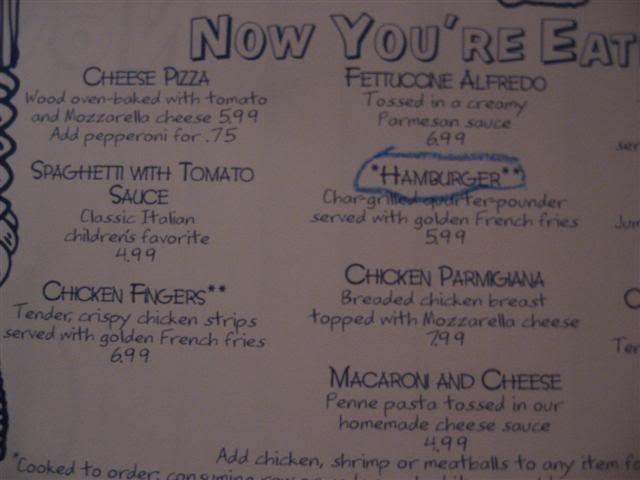 NOW YOU'RE EAT
CHEESE PIZZA
Wood oven-baked with tomato
and Mozzarella cheese 5.99
Add pepperoni for .75
SPAGHETTI WITH TOMATO
SAUCE
Classic Italian
children's favorite
4.99
CHICKEN FINGERS**
Tender, crispy chicken strips
served with golden French fries
6.99
FETTUCCINE ALFREDO
Tossed in a creamy
Parmesan sauce
6.99
*HAMBURGER**
Char-grilled quarter-pounder
served with golden French fries
5.99
CHICKEN PARMIGIANA
Breaded chicken breast
topped with Mozzarella cheese
7.99
MACARONI AND CHEESE
Penne pasta tossed in our
homemade cheese sauce
4.99
Add chicken, shrimp or meatballs to any item fo
*Cooked to order, consuming
ser
Jum
C
Ter